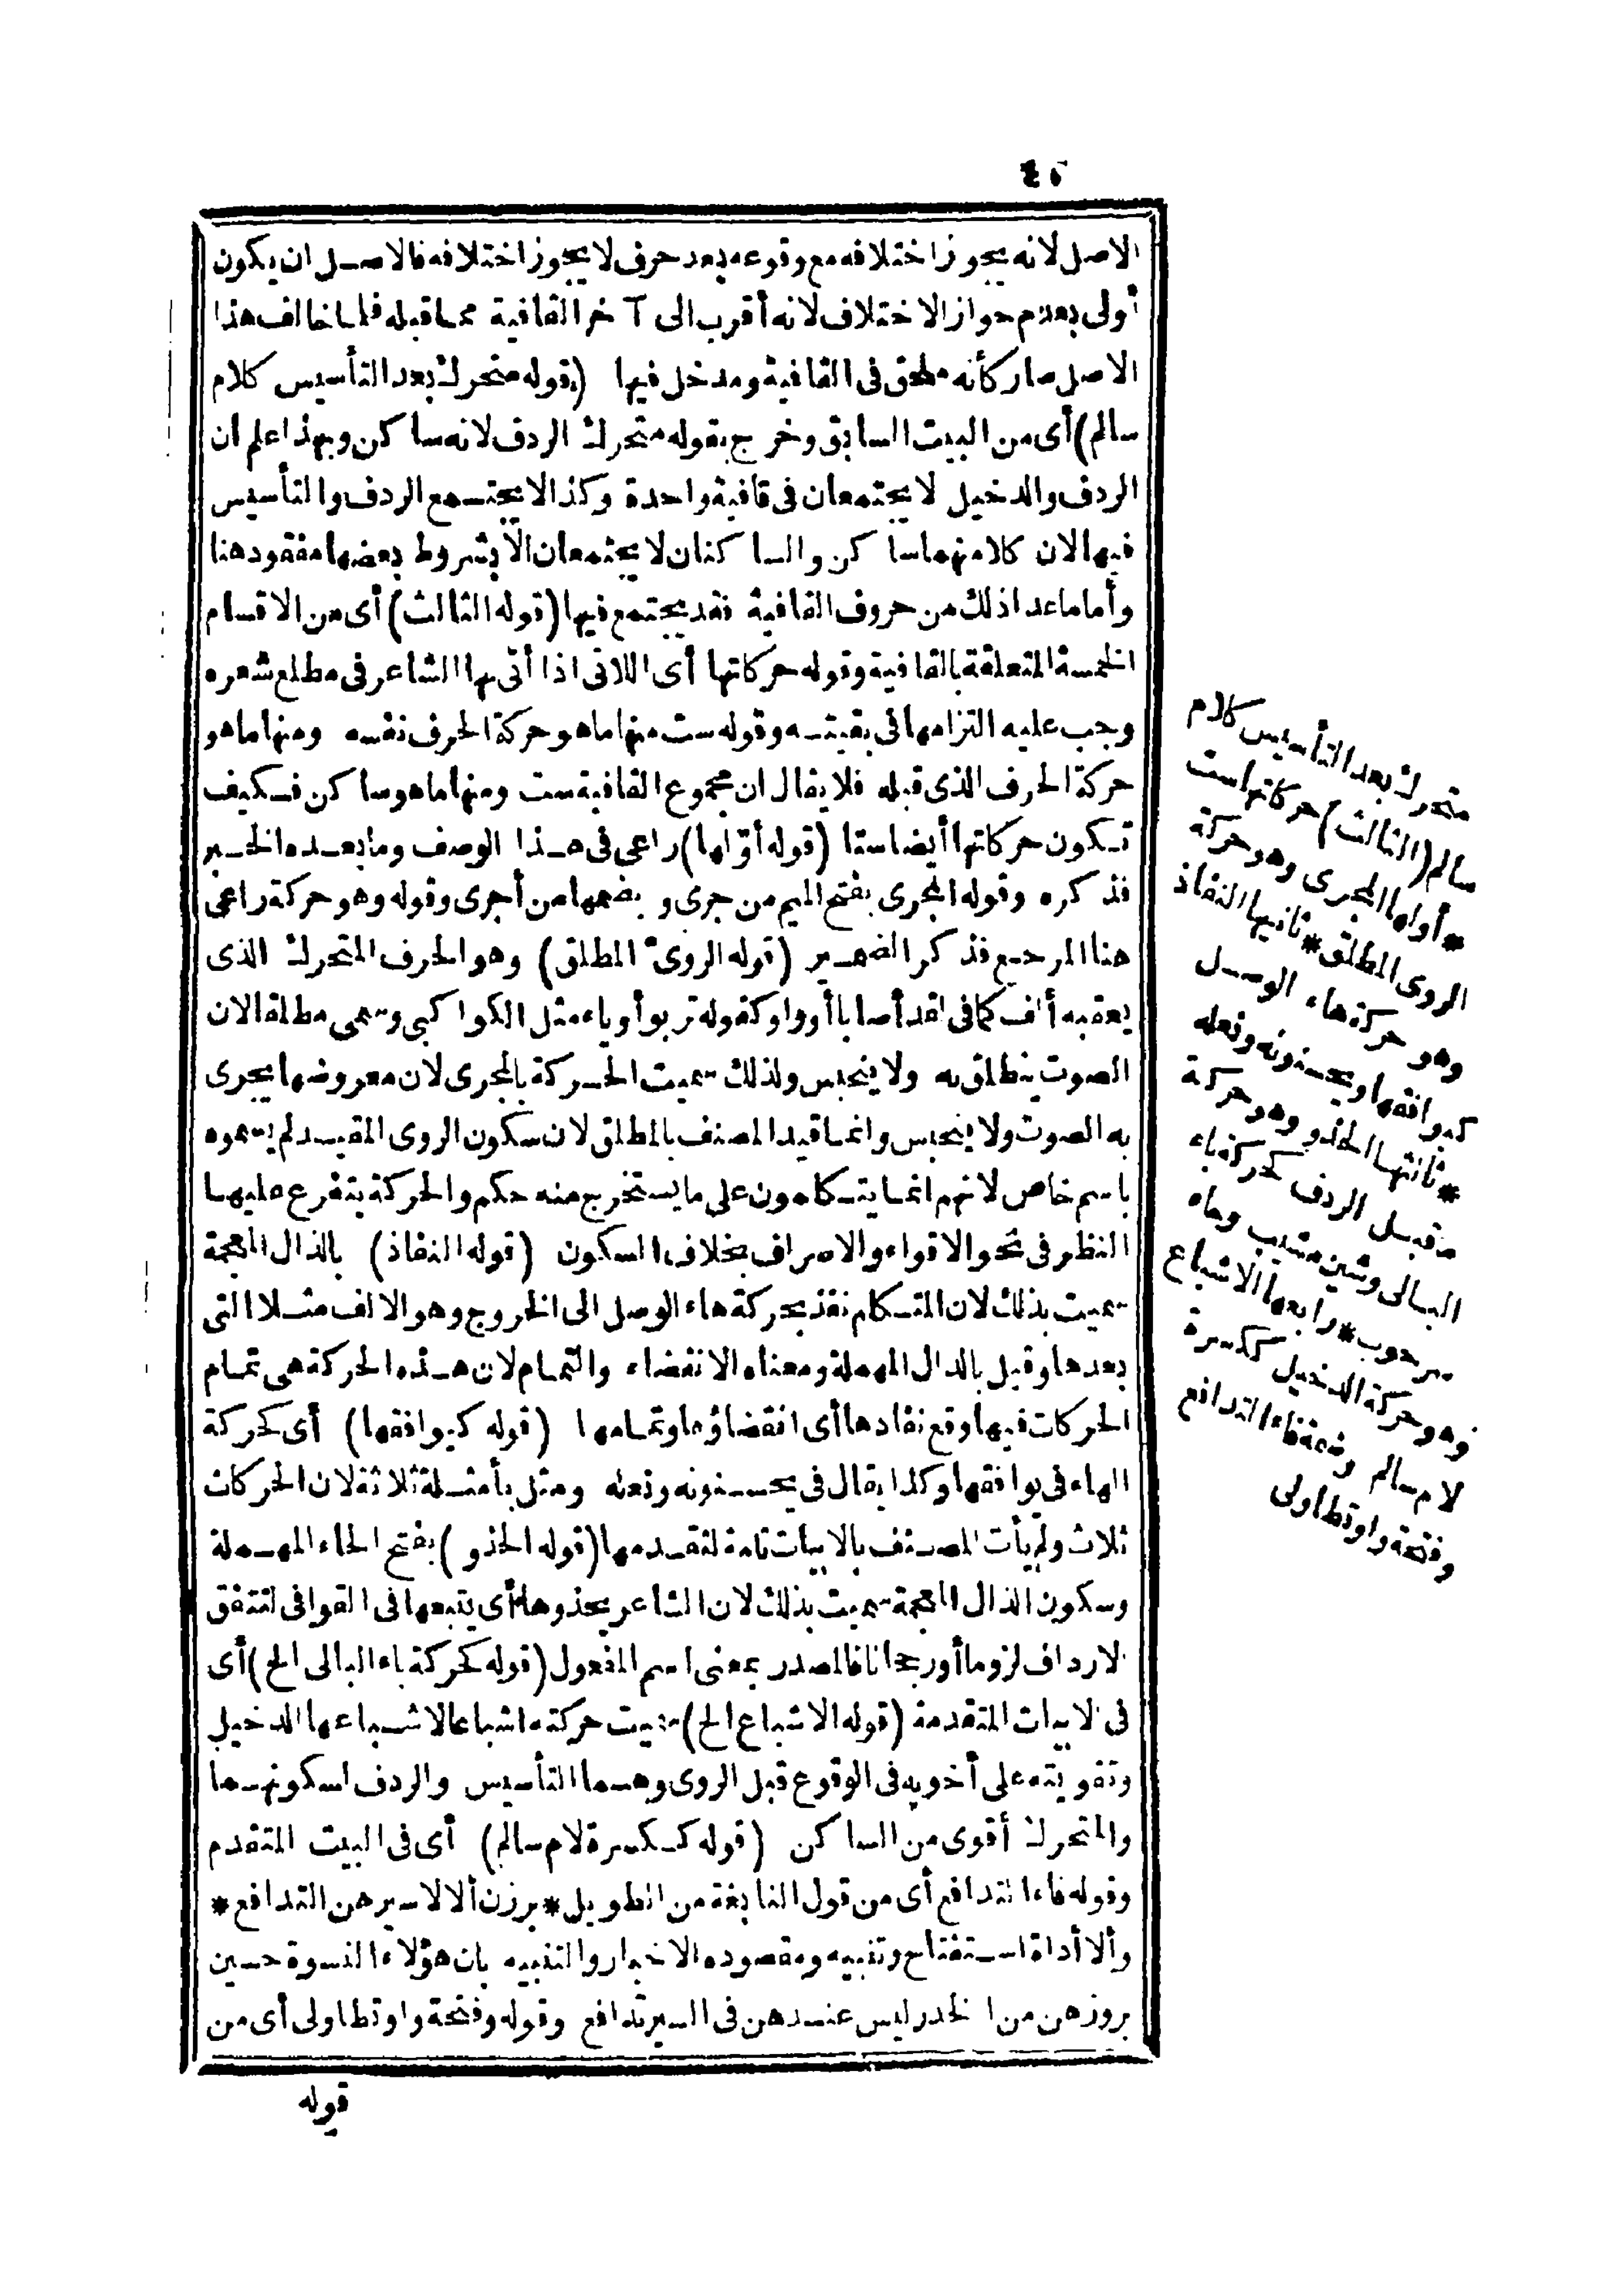 ٤٥
الاصل لانه يجوز اختلافه مع وقوعه بعد حرف لا يجوز اختلافه فالاصل ان يكون
أولى بعدم جواز الاختلاف لانه أقرب الى آخر القافية مما قبله فلما خالف هذا
الاصل صار كأنه ملحق فى القافية ومدخل فيها (قوله متحرك بعد التأسيس كلام
سالم) أى من البيت السابق وخرج بقوله متحرك الردف لانه ساكن وبهذا علم ان
الردف والدخيل لا يجتمعان فى قافية واحدة وكذا لا يجتمع الردف والتأسيس
فيها لان كلا منهما ساكن والساكنان لا يجتمعان الا بشروط بعضها مفقود هنا
وأما ما عدا ذلك من حروف القافية فقد يجتمع فيها (قوله الثالث) أى من الاقسام
الخمسة المتعلقة بالقافية وقوله حركاتها أى اللاتى اذا أتى بها الشاعر فى مطلع شعره
وجب عليه التزامها فى بقيته وقوله ست منها ما هو حركة الحرف نفسه ومنها ما هو
حركة الحرف الذى قبله فلا يقال ان مجموع القافية ست ومنها ما هو ساكن فكيف
تكون حركاتها أيضا ستا (قوله أولها) راعى فى هذا الوصف وما بعده الخبر
فذكره وقوله المجرى بفتح الميم من جرى وبضمها من أجرى وقوله وهو حركة راعى
هنا المرجع فذكر الضمير (قوله الروى المطلق) وهو الحرف المتحرك الذى
يعقبه ألف كما فى لقد أصابا أو واو كقوله تربو أو ياء مثل الكواكبى وسمى مطلقا لان
الصوت ينطلق به ولا ينحبس ولذلك سميت الحركة بالمجرى لان معروضها يجرى
به الصوت ولا ينحبس وانما قيد المصنف بالمطلق لان سكون الروى المقيد لم يسموه
باسم خاص لانهم انما يتكلمون على ما يستخرج منه حكم والحركة يتفرع عليها
النظر فى نحو الاقواء والاصراف بخلاف السكون (قوله النفاذ) بالذال المعجمة
سميت بذلك لان المتكلم نفذ بحركة هاء الوصل الى الخروج وهو الالف مثلا التى
بعدها وقيل بالدال المهملة ومعناه الانقضاء والتمام لان هذه الحركة هى تمام
الحركات فيها وقع نفادها أى انقضاؤها وتمامها (قوله كيوافقها) أى كحركة
الهاء فى يوافقها وكذا يقال فى يحسنونه ونعله ومثل بأمثلة ثلاثة لان الحركات
ثلاث ولم يأت المصنف بالابيات تامة لتقدمها (قوله الحذو) بفتح الحاء المهملة
وسكون الذال المعجمة سميت بذلك لان الشاعر يحذوها أى يتبعها فى القوافى لتتفق
الارداف لزوما أو رجحانا فالمصدر بمعنى اسم المفعول (قوله كحركة باء البالى الخ) أى
فى الابيات المتقدمة (قوله الاشباع الخ) سميت حركته اشباعا لاشباعها الدخيل
وتقويته على أخويه فى الوقوع قبل الروى وهما التأسيس والردف لسكونهما
والمتحرك أقوى من الساكن (قوله ككسرة لام سالم) أى فى البيت المتقدم
وقوله فاء التدافع أى من قول النابغة من الطويل * برزن ألا لا سيرهن التدافع *
وألا أداة استفتاح وتنبيه ومقصوده الاخبار والتنبيه بان هؤلاء النسوة حين
بروزهن من الخدر ليس عندهن فى السير تدافع وقوله وفتحة واو تطاولى أى من
قوله
متحرك بعد التأسيس كلام
سالم (الثالث) حركاتها ست
* أولها المجرى وهو حركة
الروى المطلق * ثانيها النفاذ
وهو حركة هاء الوصل
كيوافقها ويحسنونه ونعله
* ثالثها الحذو وهو حركة
ما قبل الردف كحركة باء
البالى وشين مشيب وحاء
سرحوب * رابعها الاشباع
وهو حركة الدخيل ككسرة
لام سالم وضمة فاء التدافع
وفتحة واو تطاولى